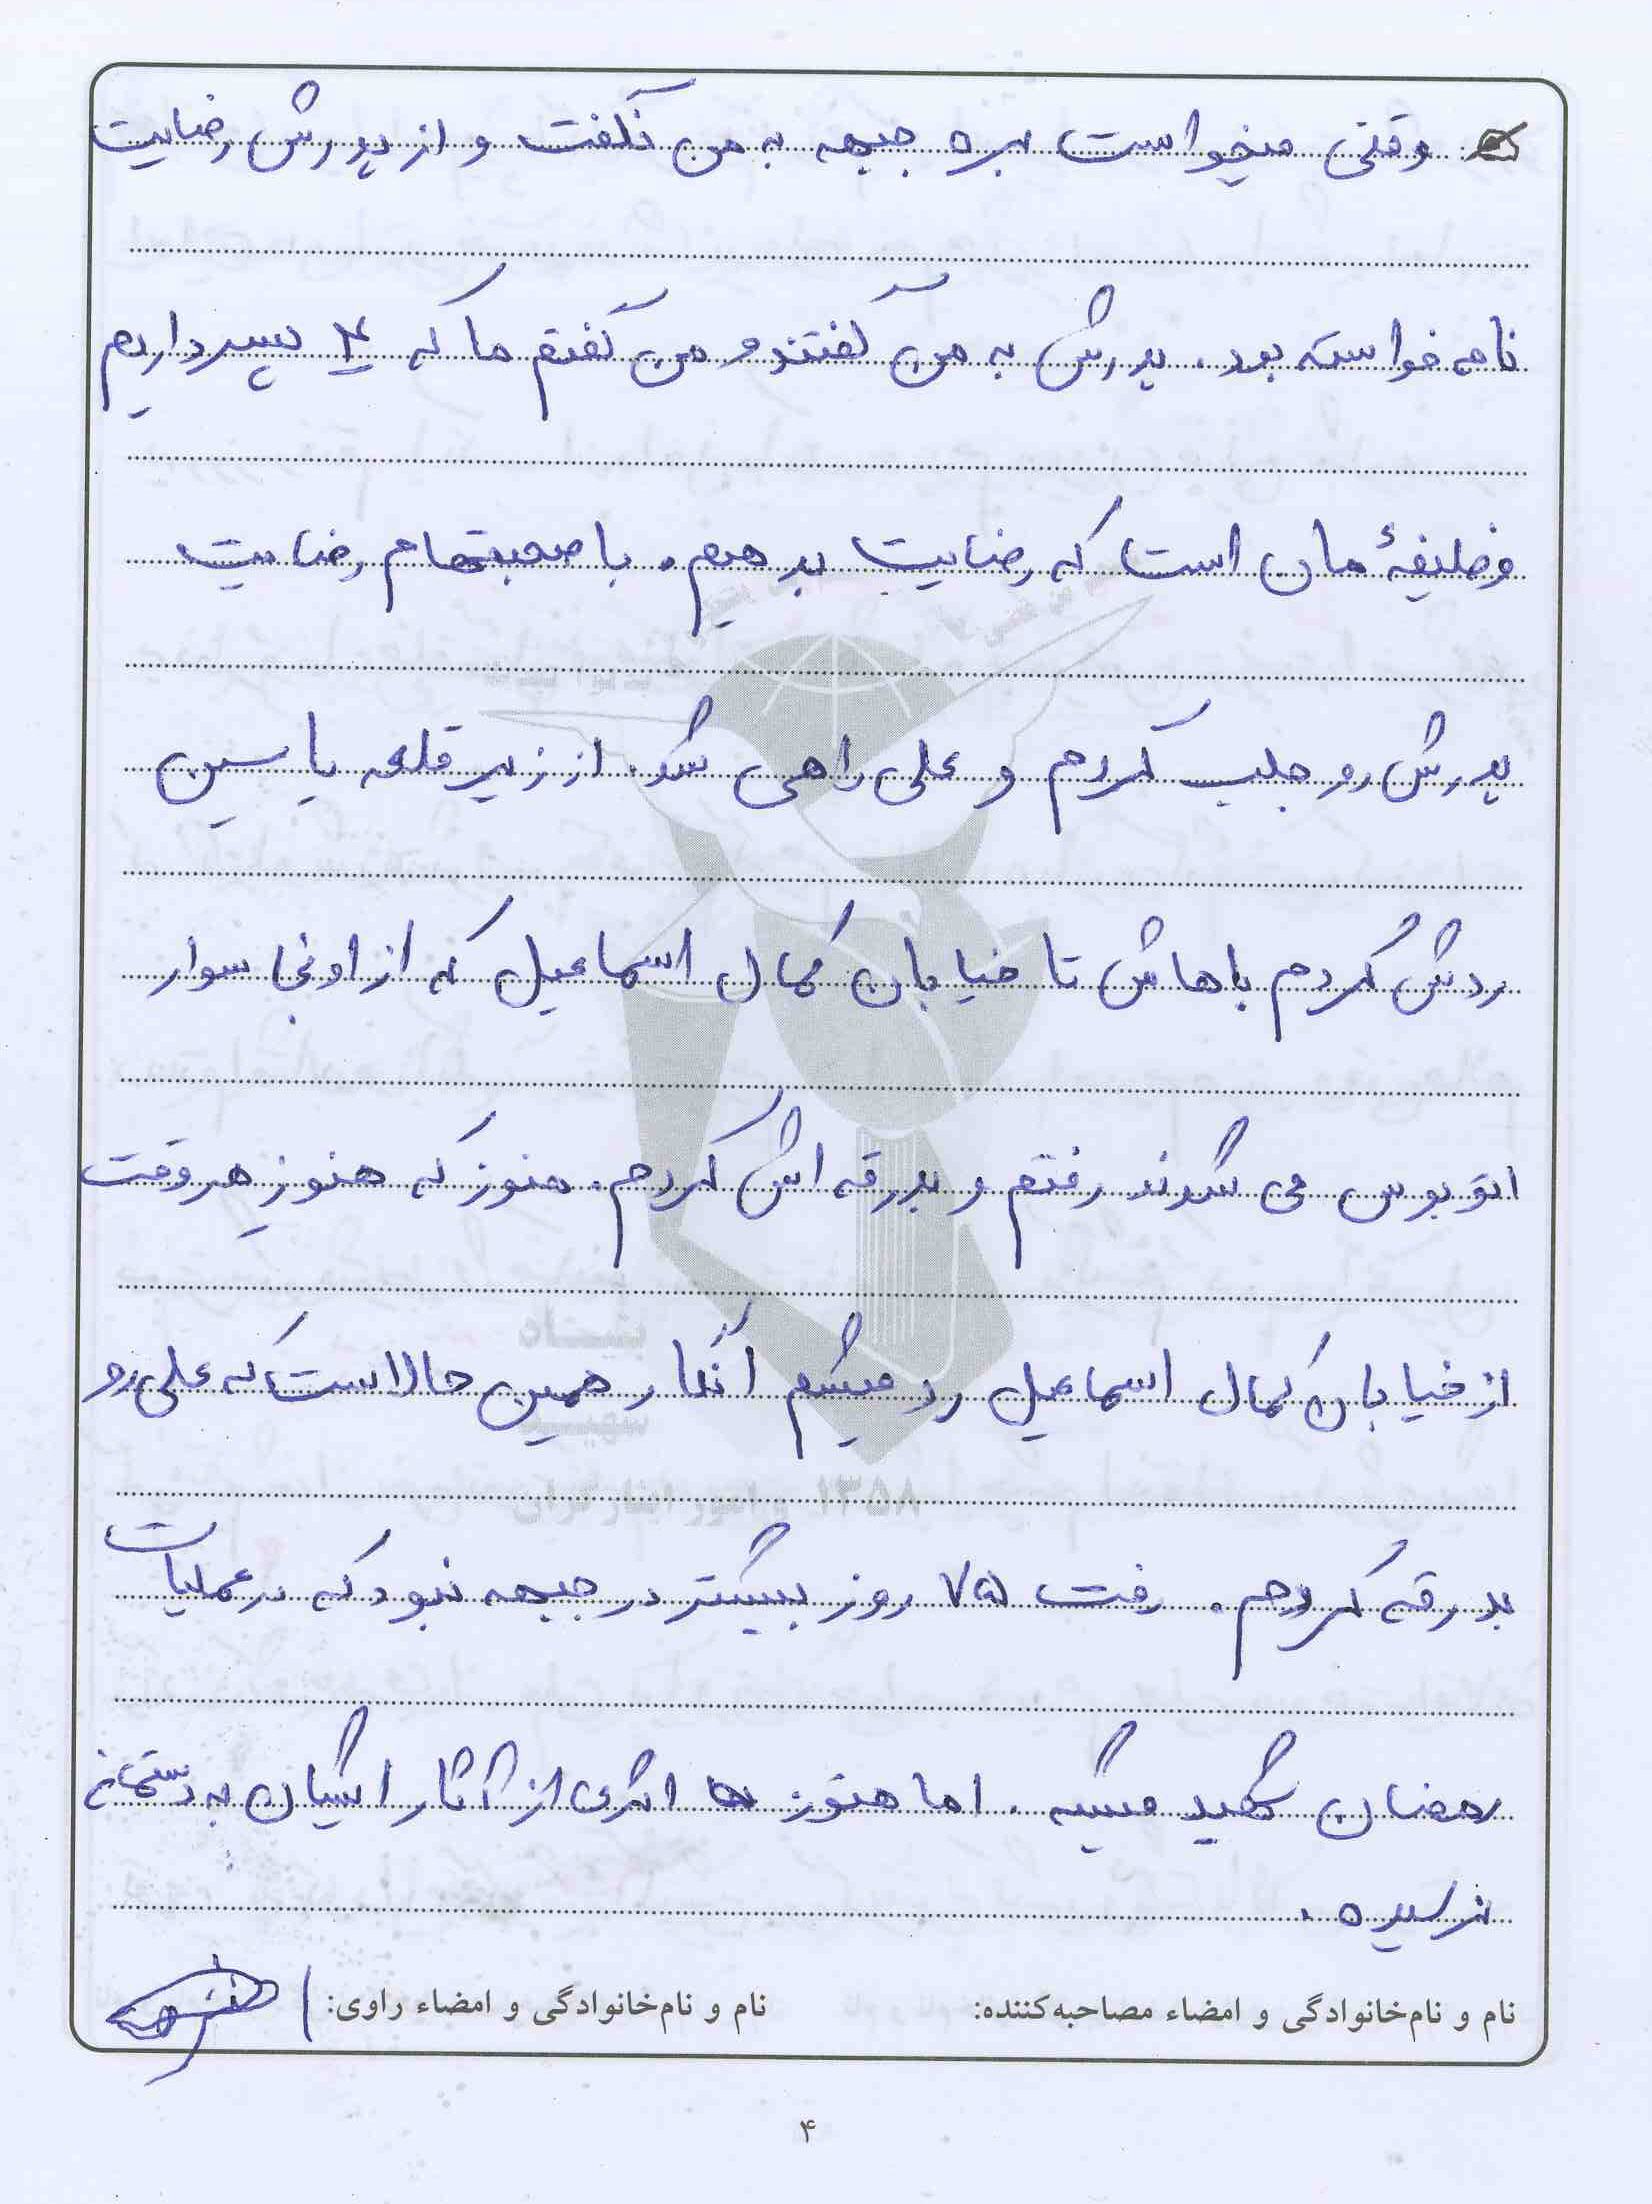 وقتی میخواست بره جبهه به من نگفت و از پدرش رضایت
نامه خواسته بود. پدرش به من گفتند و من گفتم ما که ۴ پسر داریم
وظیفهٔ مان است که رضایت بدهیم. با صحبتهام رضایت
پدرش رو جلب کردم و علی راهی شد. از زیر قلعه یاسین
ردش کردم باهاش تا خیابان کمال اسماعیل که از اونجا سوار
اتوبوس می شدند رفتم و بدرقه اش کردم. هنوز که هنوزِ هر وقت
از خیابان کمال اسماعیل رد میشم انگار همین حالا است که علی رو
بدرقه کردم. رفت ۷۵ روز بیشتر در جبهه نبود که در عملیات
رمضان شهید میشه. اما هنوز اثری از آثار ایشان به دستمان
نرسیده.
نام و نام‌خانوادگی و امضاء مصاحبه‌کننده: نام و نام‌خانوادگی و امضاء راوی:
۴
بنیاد
شهید
و امور ایثارگران ۱۳۵۸